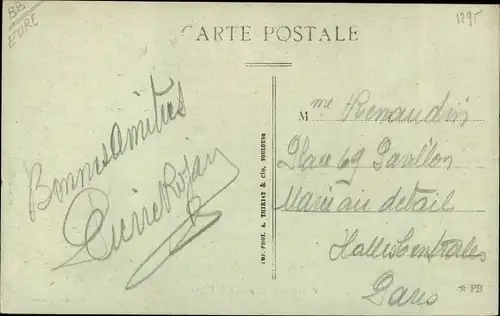 BB
EURE
1295
CARTE POSTALE
Bonnes Amitiés
Pierre Rojan
M me Renaudin
Place 69 Pavillon
Marée au detail
Halles Centrales
Paris
IMP. PHOT. A. THIRIAT & Cie, TOULOUSE
☆ PB